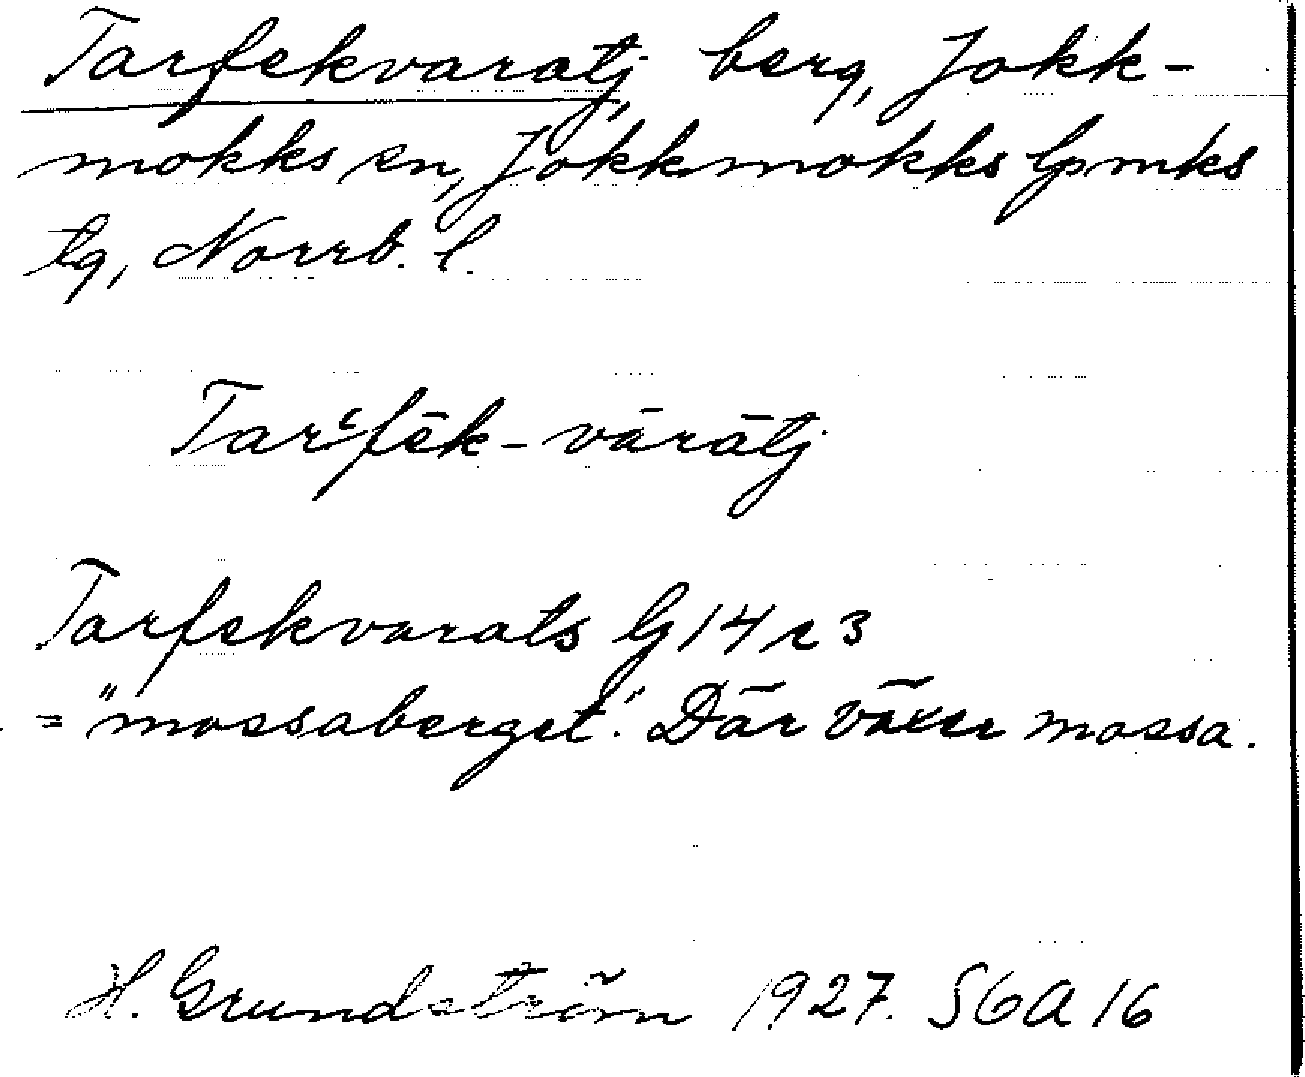 Tarfekvaratj, berg, Jokk-
mokks sn, Jokkmokks lpmks
tg, Norrb. l.
Tarʿfēk-vārātj
Tarfekvarats G 14 r 3
= "mossaberget". Där växer mossa.
H. Grundström 1927. S6A 16